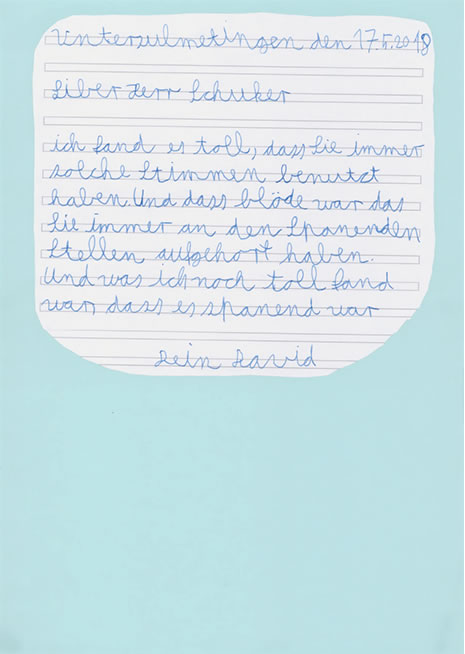 Untersulmetingen den 17.5.2018
Liber Herr Schuker
ich fand es toll, dass Sie immer
solche Stimmen benutzt
haben. Und dass blöde war das
Sie immer an den Spanenden
Stellen aufgehort haben.
Und was ich noch toll fand
war, dass es spanend war
Dein David